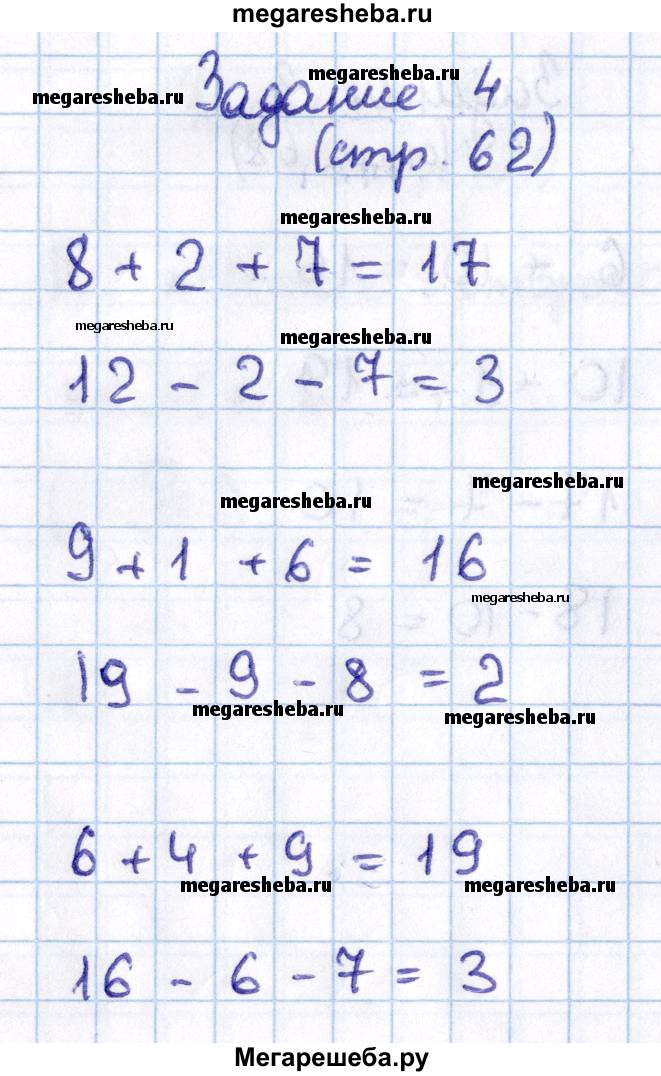 megaresheba.ru
megaresheba.ru
megaresheba.ru
Задание 4
(стр. 62)
megaresheba.ru
8 + 2 + 7 = 17
megaresheba.ru
megaresheba.ru
12 - 2 - 7 = 3
megaresheba.ru
megaresheba.ru
9 + 1 + 6 = 16
megaresheba.ru
19 - 9 - 8 = 2
megaresheba.ru
megaresheba.ru
6 + 4 + 9 = 19
megaresheba.ru
megaresheba.ru
16 - 6 - 7 = 3
Мегарешеба.ру